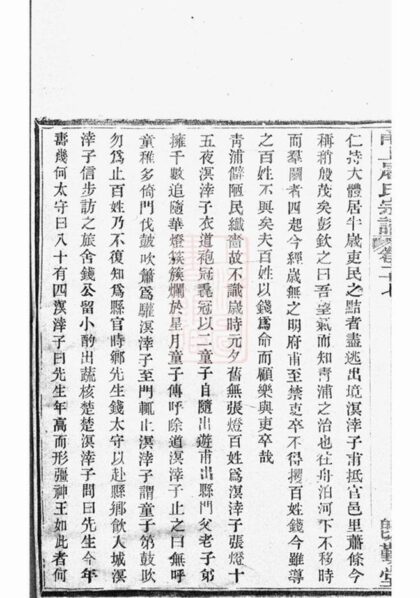 甬上屠氏宗譜 卷二十七
仁持大體居半歲吏民之黠者盡逃出境溟涬子甫抵官邑里蕭條今
稱稍殷茂矣彭欽之曰吾望氣而知青浦之治也往舟泊河下不移時
而羣鬭者四起今經歲無之明府甫至禁吏卒不得擾百姓錢今雖導
之百姓不與矣夫百姓以錢爲命而顧樂與吏卒哉
青浦僻陋民纖嗇故不識歲時元夕舊無張燈百姓爲溟涬子張燈十
五夜溟涬子衣道袍冠毳冠以二童子自隨出遊甫出縣門父老子弟
擁千數追隨華燈簇簇爛於星月童子傳呼除道溟涬子止之曰無呼
童稚多倚門伐鼓吹簫爲驩溟涬子至門輒止溟涬子謂童子第鼓吹
勿爲止百姓乃不復知爲縣官時鄉先生錢太守以赴縣鄉飲入城溟
涬子信步訪之旅舍錢公留小酌出蔬核楚楚溟涬子問曰先生今年
壽幾何太守曰八十有四溟涬子曰先生年高而形彊神王如此者何
勤堂